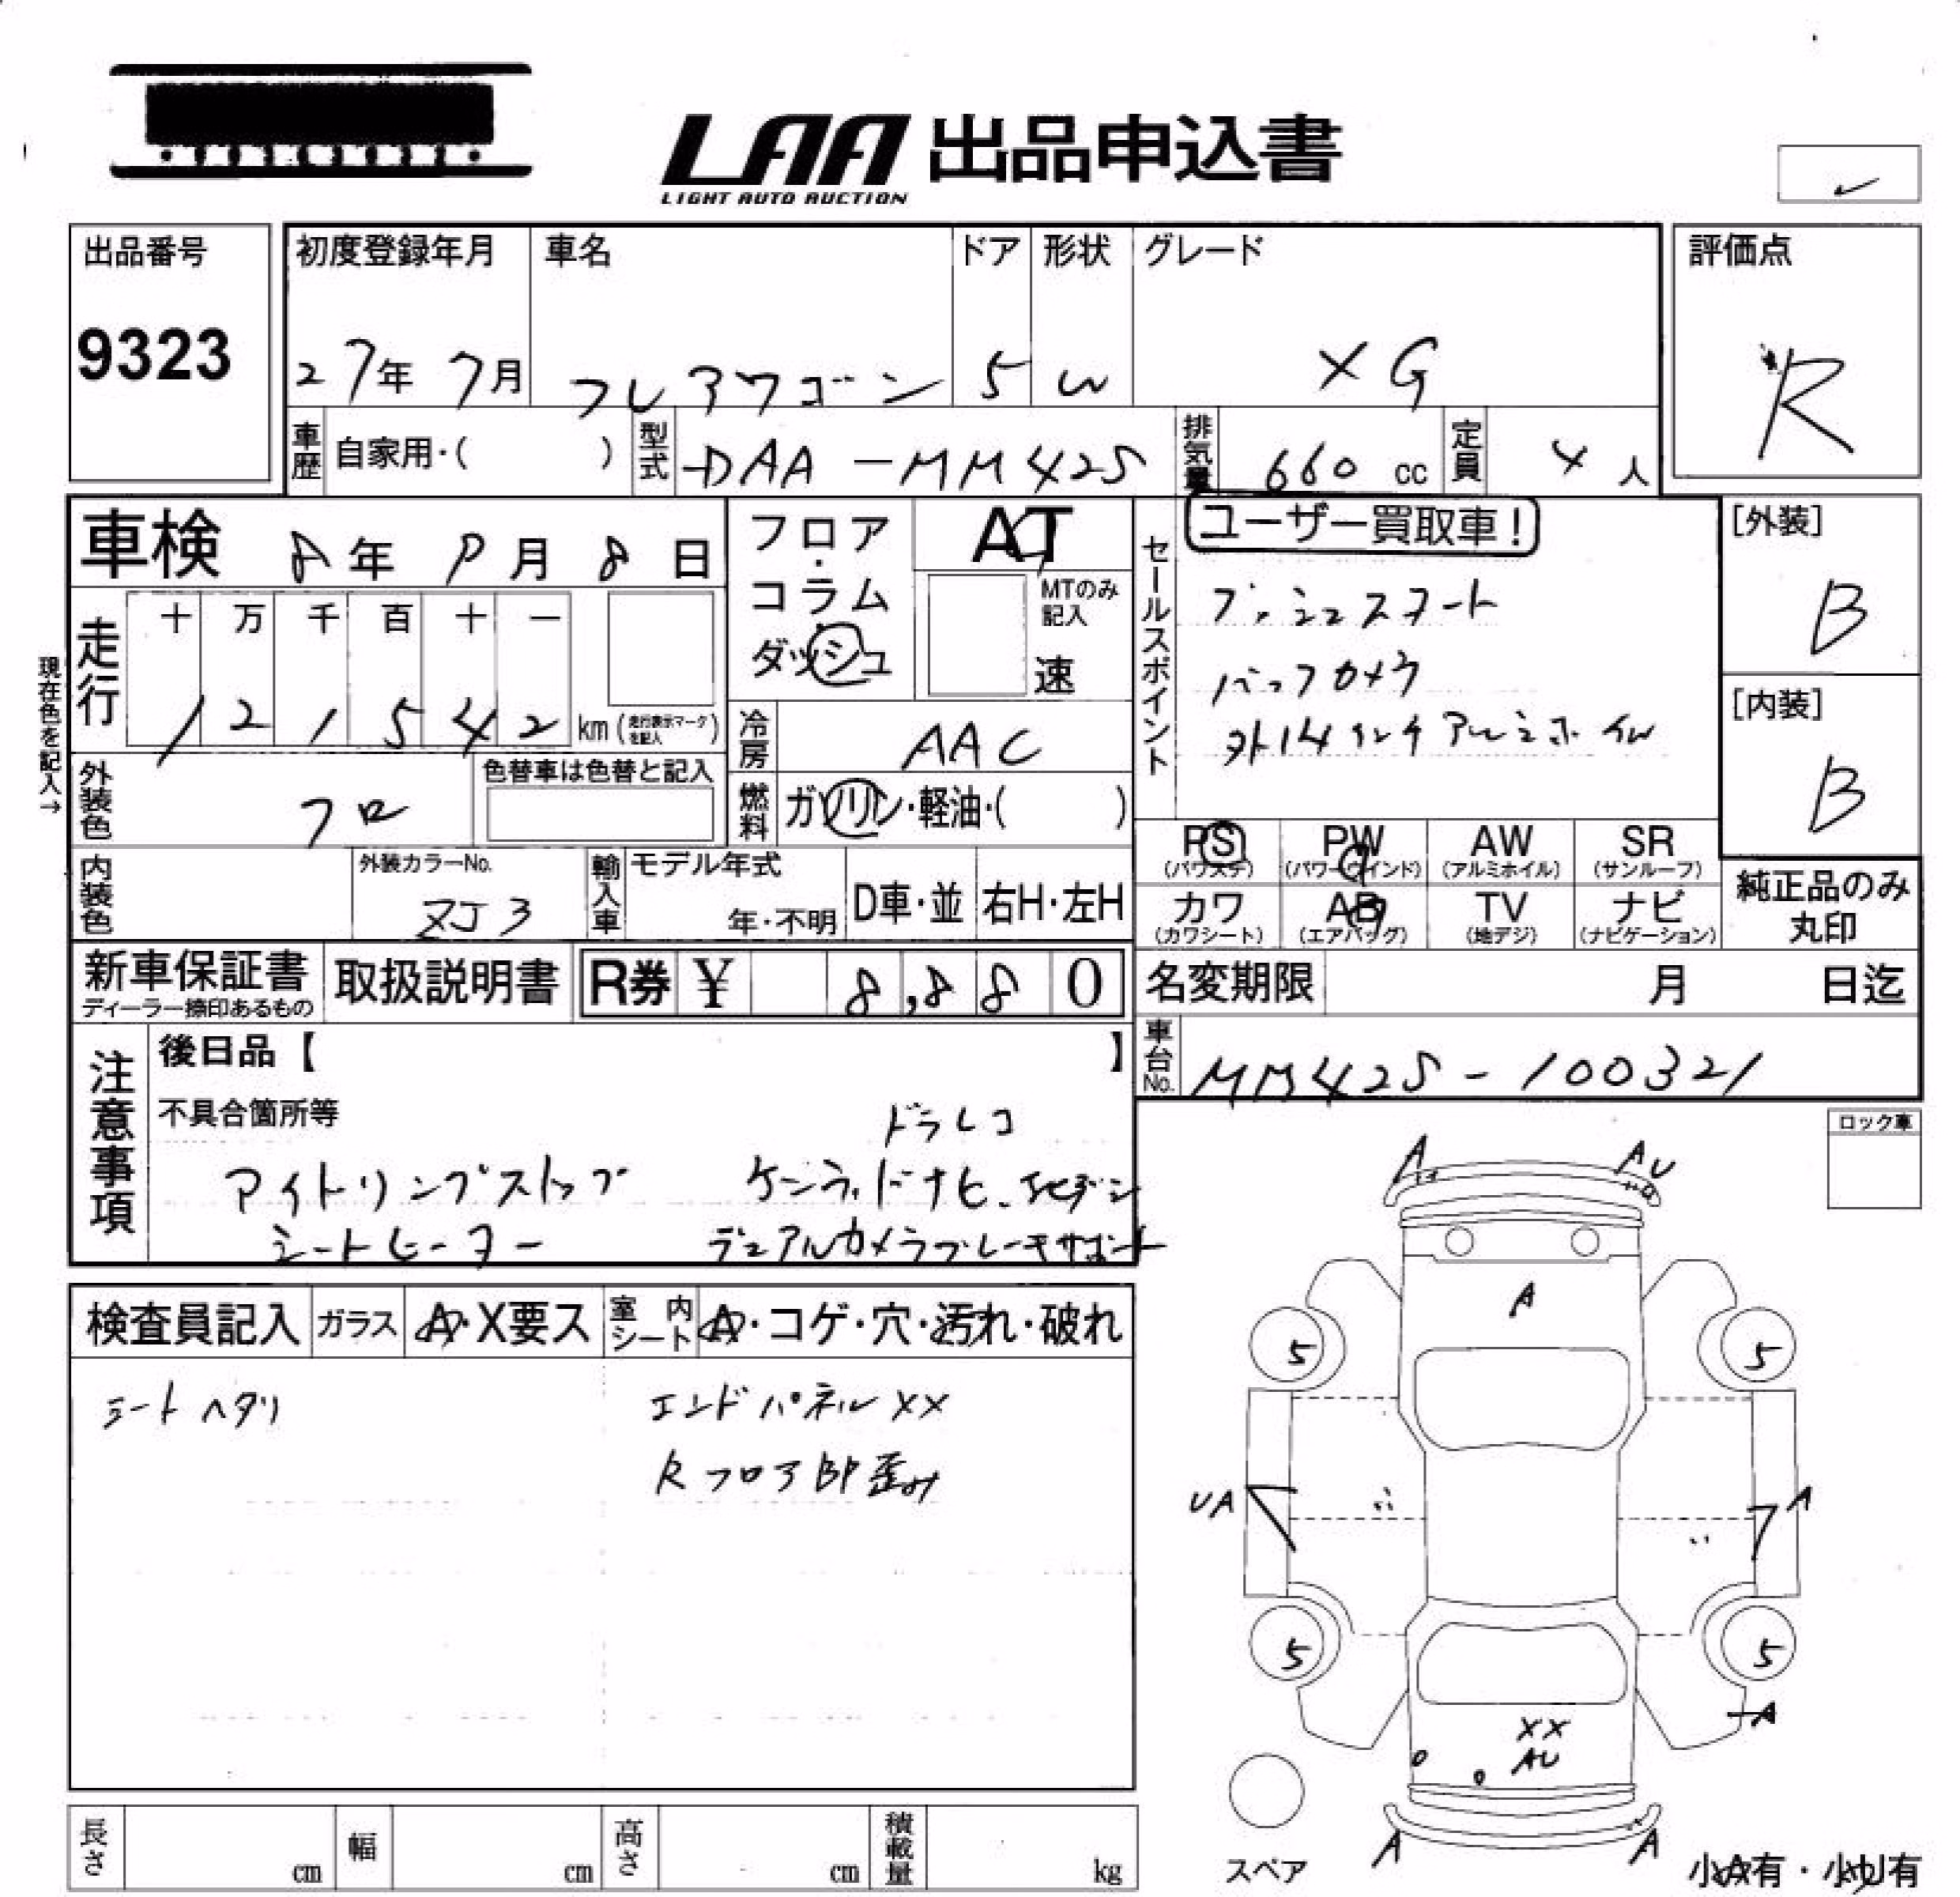 LAA 出品申込書
LIGHT AUTO AUCTION
出品番号 初度登録年月 車名 ドア 形状 グレード 評価点
9323 27年 7月 フレアワゴン 5 W XG R
車歴 自家用・( ) 型式 DAA-MM42S 排気量 660 cc 定員 4 人
車検 8年 9月 8日
フロア・コラム ダッシュ
AT
MTのみ記入
速
セールスポイント
ユーザー買取車!
プッシュスタート
バックカメラ
外14インチアルミホイル
[外装]
B
[内装]
B
現在色を記入→
走行 十 万 千 百 十 一
1 2 1 5 4 2 km (走行表示マークを記入)
冷房 AAC
外装色 クロ
色替車は色替と記入
燃料 ガソリン・軽油・( )
内装色
外装カラーNo.
ZJ3
輸入車 モデル年式
年・不明 D車・並 右H・左H
PS (パワステ) PW (パワーウインド) AW (アルミホイル) SR (サンルーフ)
カワ (カワシート) AB (エアバッグ) TV (地デジ) ナビ (ナビゲーション)
純正品のみ
丸印
新車保証書
ディーラー捺印あるもの
取扱説明書 R券 ¥ 8,880
名変期限 月 日迄
車台No. MM42S-100321
注意事項
後日品【 】
不具合箇所等
ドラレコ
アイドリングストップ ケンウッドナビ、地デジ
シートヒーター デュアルカメラブレーキサポート
ロック車
検査員記入 ガラス A・X要ス 室内シート A・コゲ・穴・汚れ・破れ
シートヘタリ エンドパネルXX
RフロアBP歪み
A AU
A
5 5
UA A
5 5
A
XX
AU
A A
スペア
小A有・小U有
長さ cm 幅 cm 高さ cm 積載量 kg